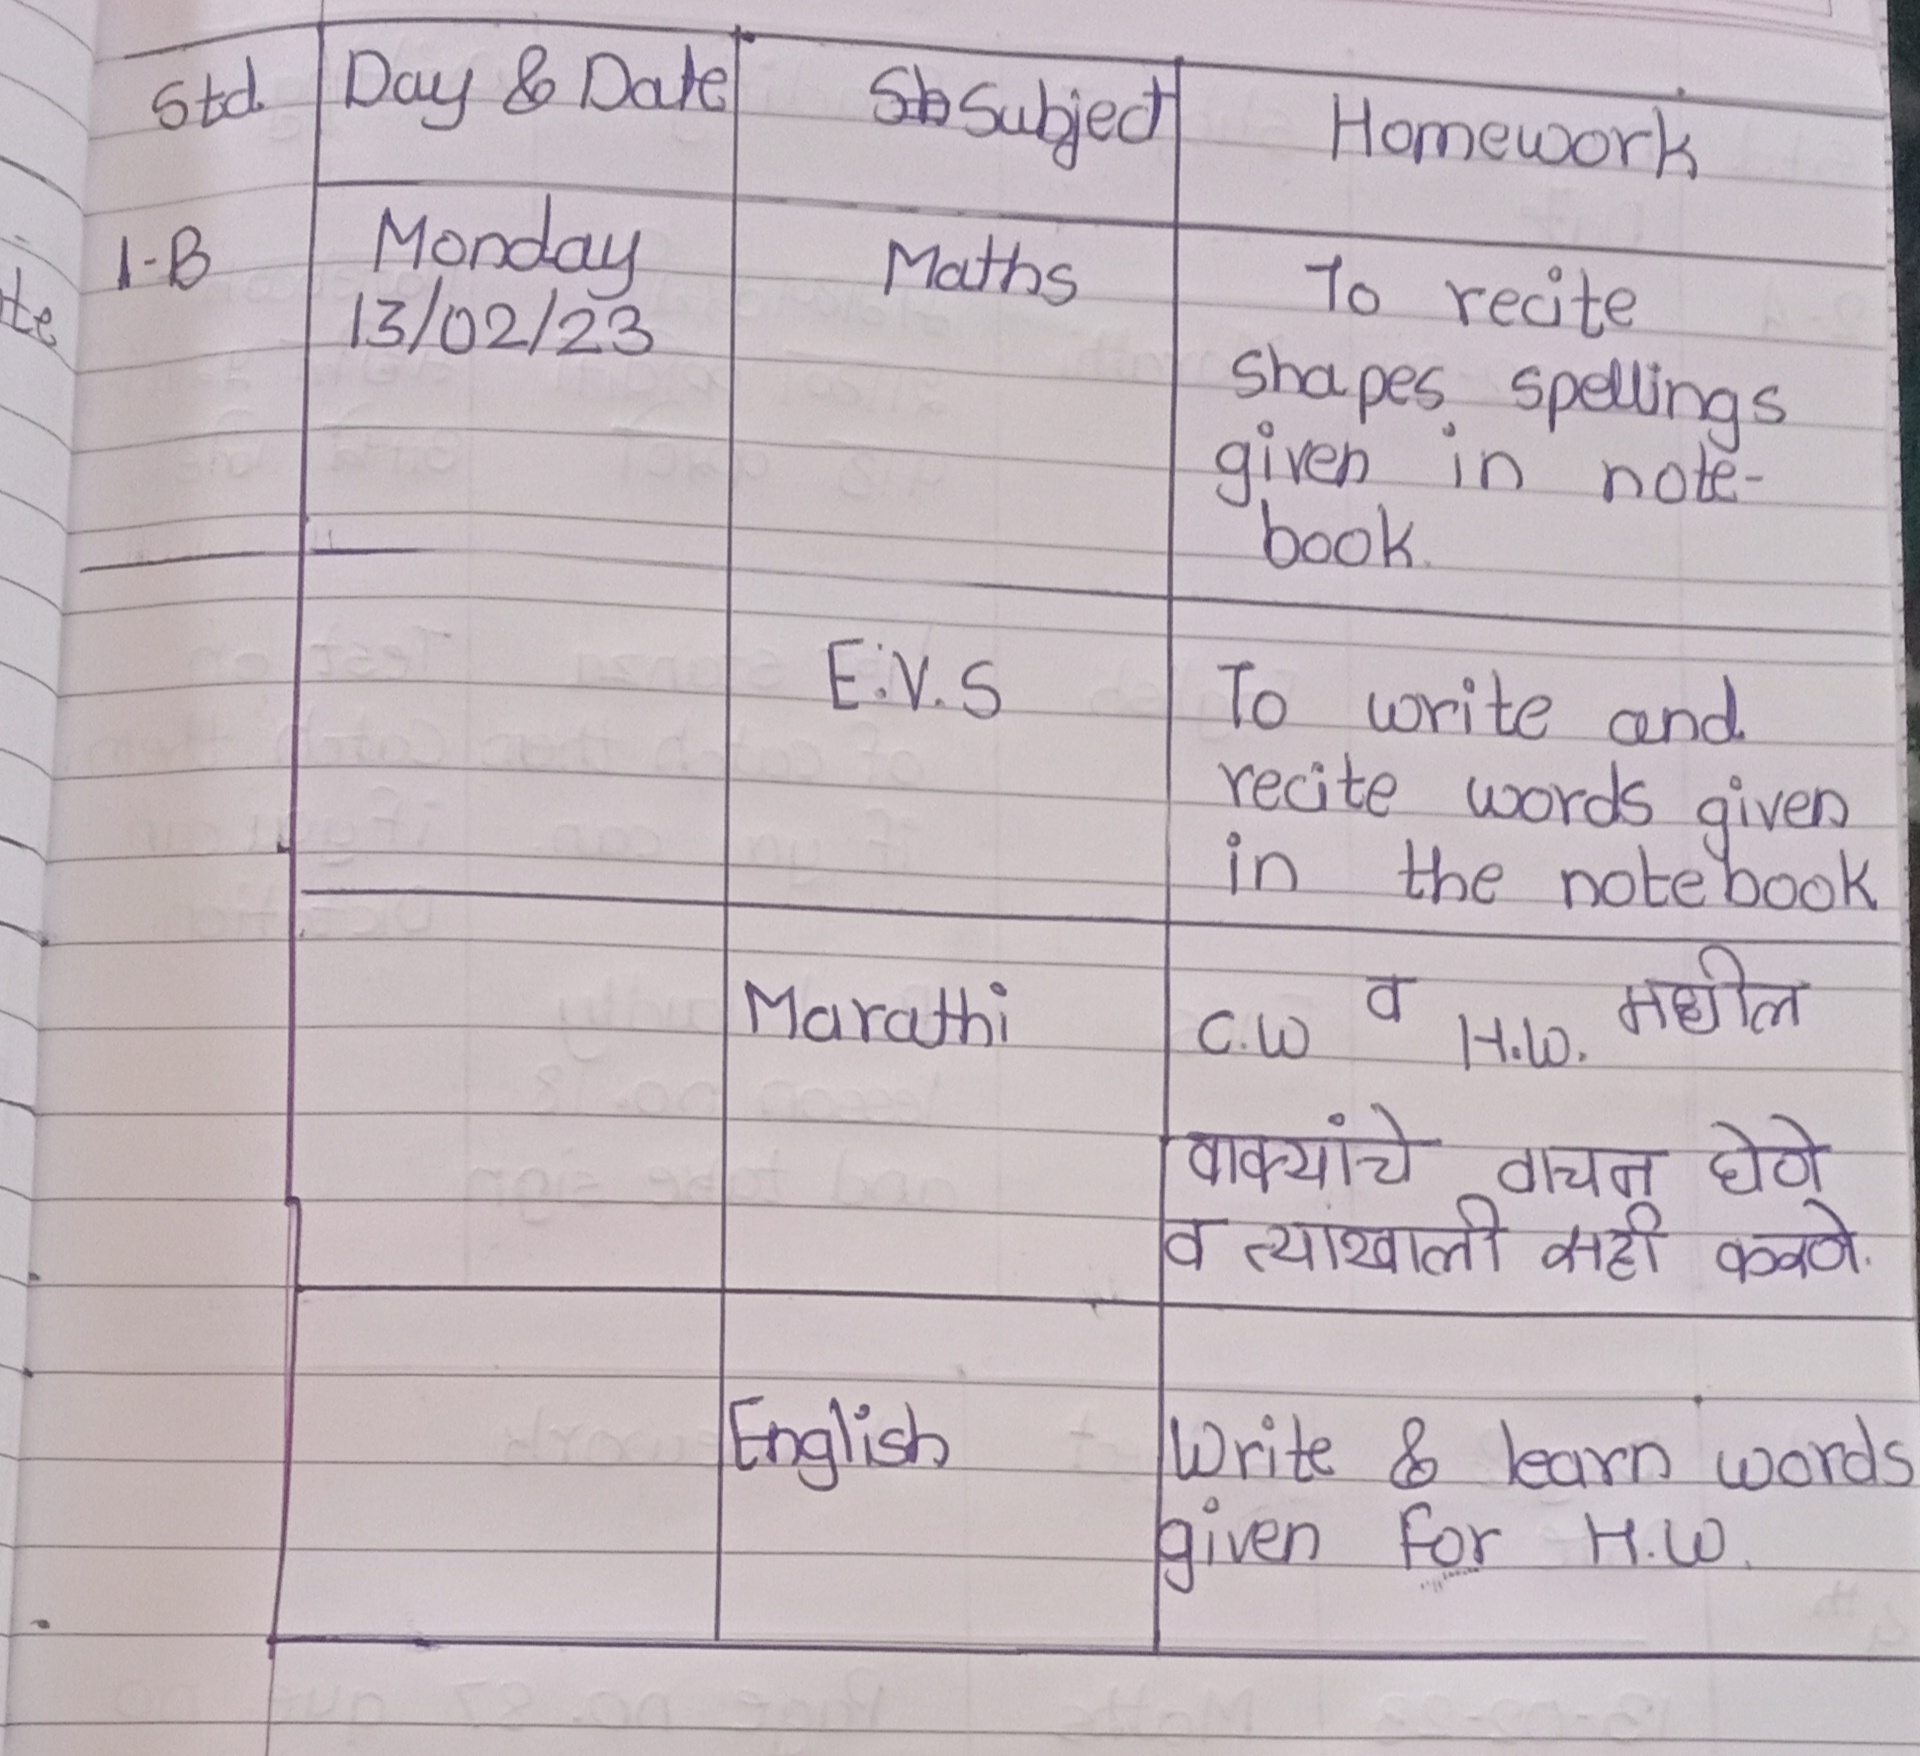 Std. Day & Date Subject Homework
1-B Monday Maths To recite
13/02/23
shapes spellings
given in note-
book.
E.V.S To write and
recite words given
in the notebook
Marathi C.W व H.W. मधील
वाक्यांचे वाचन घेणे
व त्याखाली सही करणे.
English Write & learn words
given for H.W.